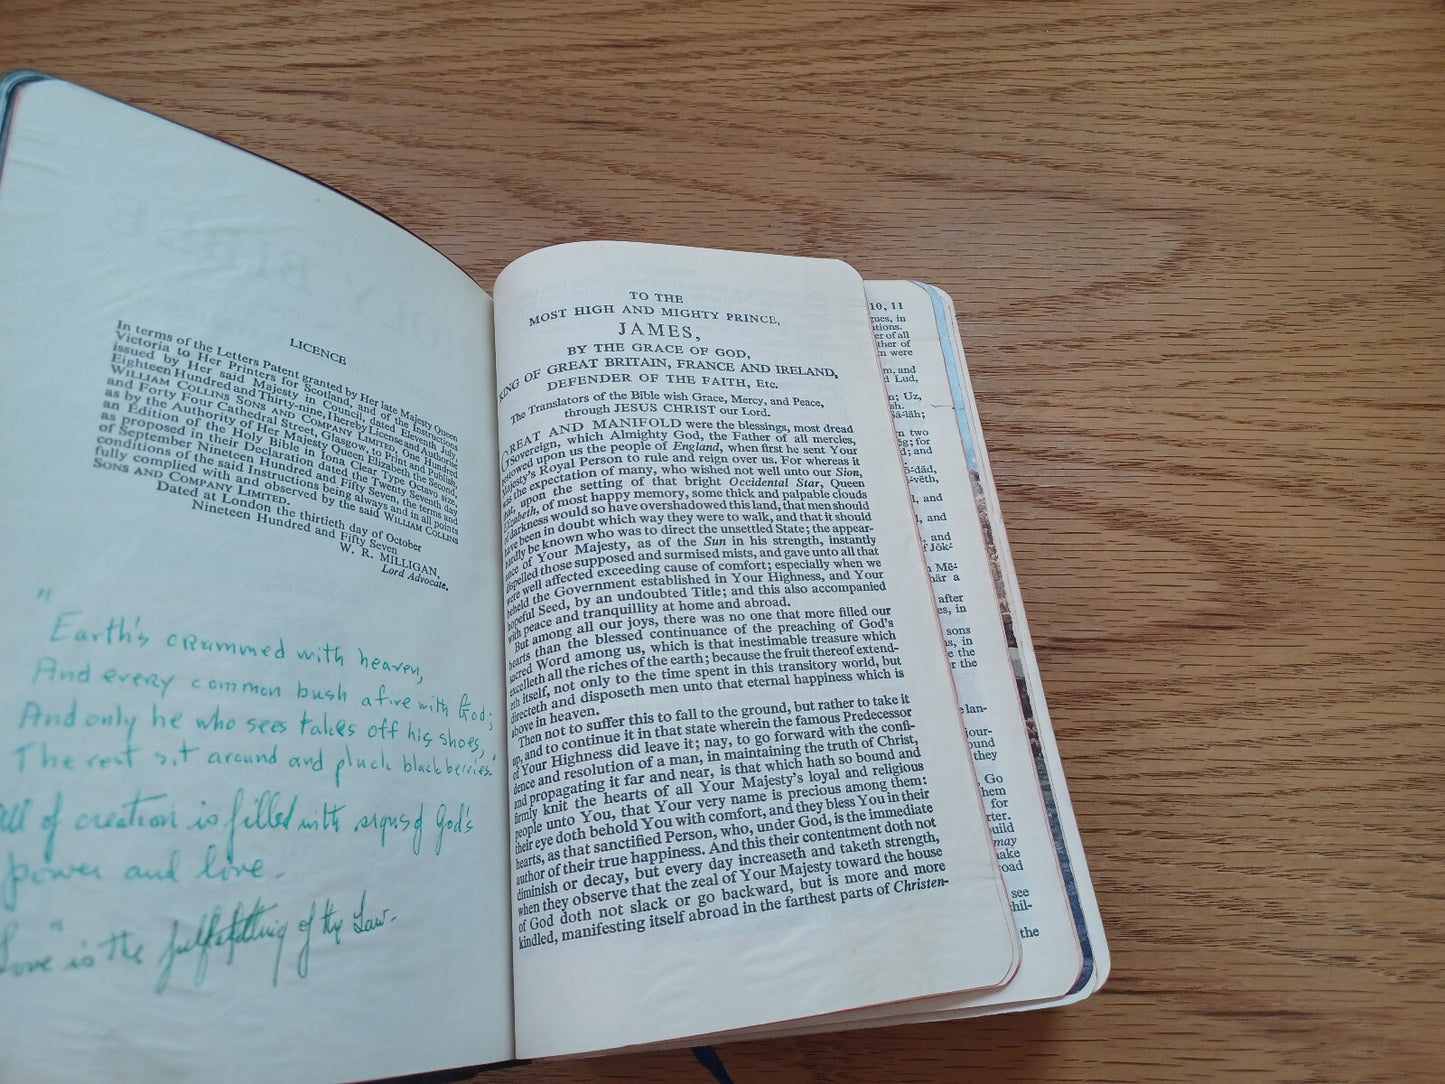 LICENCE
In terms of the Letters Patent granted by Her late Majesty Queen
Victoria to Her Printers for Scotland, and of the Instructions
issued by Her said Majesty in Council, dated Eleventh July
Eighteen Hundred and Thirty-nine, I hereby License and Authorise
WILLIAM COLLINS SONS AND COMPANY LIMITED, One Hundred
and Forty Four Cathedral Street, Glasgow, to Print and Publish,
as by the Authority of Her Majesty Queen Elizabeth the Second,
an Edition of the Holy Bible in Iona Clear Type Octavo size,
as proposed in their Declaration dated the Twenty Seventh day
of September Nineteen Hundred and Fifty Seven, the terms and
conditions of the said Instructions being always and in all points
fully complied with and observed by the said WILLIAM COLLINS
SONS AND COMPANY LIMITED.
Dated at London the thirtieth day of October
Nineteen Hundred and Fifty Seven
W. R. MILLIGAN,
Lord Advocate.
"
Earth's crammed with heaven,
And every common bush afire with God;
And only he who sees takes off his shoes,
The rest sit around and pluck blackberries."
All of creation is filled with signs of God's
power and love.
"Love" is the of the Law.
TO THE
MOST HIGH AND MIGHTY PRINCE,
JAMES,
BY THE GRACE OF GOD,
KING OF GREAT BRITAIN, FRANCE AND IRELAND,
DEFENDER OF THE FAITH, Etc.
The Translators of the Bible wish Grace, Mercy, and Peace,
through JESUS CHRIST our Lord.
GREAT AND MANIFOLD were the blessings, most dread
Sovereign, which Almighty God, the Father of all mercies,
bestowed upon us the people of England, when first he sent Your
Majesty's Royal Person to rule and reign over us. For whereas it
was the expectation of many, who wished not well unto our Sion,
that, upon the setting of that bright Occidental Star, Queen
Elizabeth, of most happy memory, some thick and palpable clouds
of darkness would so have overshadowed this land, that men should
have been in doubt which way they were to walk, and that it should
hardly be known who was to direct the unsettled State; the appear-
ance of Your Majesty, as of the Sun in his strength, instantly
dispelled those supposed and surmised mists, and gave unto all that
were well affected exceeding cause of comfort; especially when we
beheld the Government established in Your Highness, and Your
hopeful Seed, by an undoubted Title; and this also accompanied
with peace and tranquillity at home and abroad.
But among all our joys, there was no one that more filled our
hearts than the blessed continuance of the preaching of God's
sacred Word among us, which is that inestimable treasure which
excelleth all the riches of the earth; because the fruit thereof extend-
eth itself, not only to the time spent in this transitory world, but
directeth and disposeth men unto that eternal happiness which is
above in heaven.
Then not to suffer this to fall to the ground, but rather to take it
up, and to continue it in that state wherein the famous Predecessor
of Your Highness did leave it; nay, to go forward with the confi-
dence and resolution of a man, in maintaining the truth of Christ,
and propagating it far and near, is that which hath so bound and
firmly knit the hearts of all Your Majesty's loyal and religious
people unto You, that Your very name is precious among them:
their eye doth behold You with comfort, and they bless You in their
hearts, as that sanctified Person, who, under God, is the immediate
author of their true happiness. And this their contentment doth not
diminish or decay, but every day increaseth and taketh strength,
when they observe that the zeal of Your Majesty toward the house
of God doth not slack or go backward, but is more and more
kindled, manifesting itself abroad in the farthest parts of Christen-
10, 11